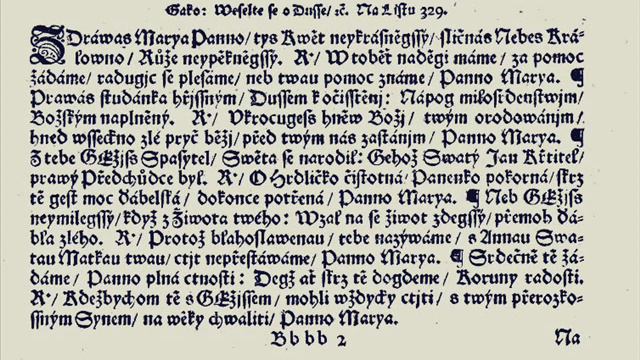 Gako: Weselte se o Dusse/ ꝛč. Na Listu 329.
ZDráwas Marya Panno/ tys Kwět neykrásněgssý/ sličnás Nebes Krá-
lowno/ Růže neypěkněgssý. R/ W tobět naděgi máme/ za pomoc
žádáme/ radugjc se plesáme/ neb twau pomoc známe/ Panno Marya. ¶
Prawás studánka hřjssným/ Dussem k očisstěnj: Nápog milostdenstwjm/
Božským naplněný. R/ Vkrocugess hněw Božj/ twým orodowánjm/
hned wsseckno zlé pryč běžj/ před twým nás zastánjm/ Panno Marya. ¶
Z tebe GEžjss Spasytel/ Swěta se narodil: Gehož Swatý Jan Křtitel/
prawý Předchůdce byl. R/ O Hrdličko čistotná/ Panenko pokorná/ skrz
tě gest moc ďábelská/ dokonce potřena/ Panno Marya. ¶ Neb GEžjss
neymilegssý/ když z Života twého: Wzal na se život zdegssý/ přemoh ďá-
bla zlého. R/ Protož blahoslawenau/ tebe nazýwáme/ s Annau Swa-
tau Matkau twau/ ctjt nepřestáwáme/ Panno Marya. ¶ Srdečně tě žá-
dáme/ Panno plná ctnosti: Degž ať skrz tě dogdeme/ Koruny radosti.
R/ Kdežbychom tě s GEžjssem/ mohli wždycky ctjti/ s twým přerozko-
ssným Synem/ na wěky chwaliti/ Panno Marya.
Bbbb 2 Na